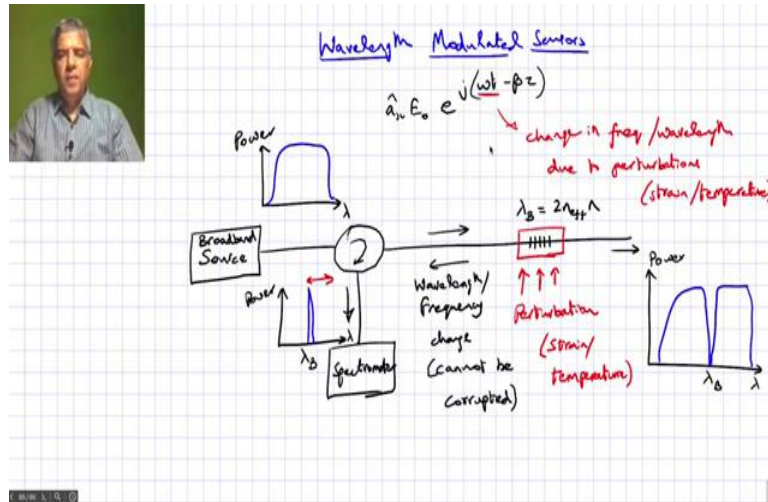 Wavelength Modulated Sensors
E₀ e^j(ωt - βz)
change in freq/wavelength
due to perturbations
(strain/temperature)
Power
λ
λ_B = 2n_eff Λ
Broadband
Source
Power
λ
λ_B
Spectrometer
Wavelength/
Frequency
change
(cannot be
corrupted)
Perturbation
(strain/
temperature)
Power
λ_B
λ